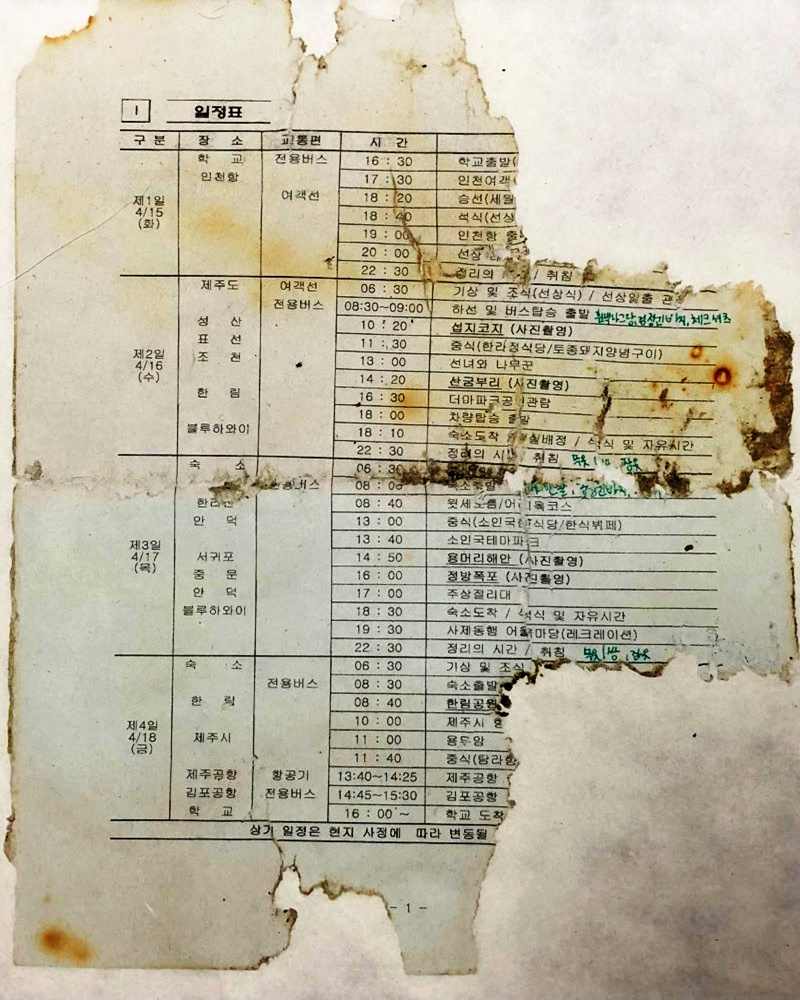 1 일정표
구분 장소 교통편 시간
제1일 4/15 (화)
학교 전용버스 16 : 30 학교출발(
인천항 17 : 30 인천여객
여객선 18 : 20 승선(세월
18 : 40 석식(선상
19 : 00 인천항 출
20 : 00 선상
22 : 30 정리의 / 취침
제2일 4/16 (수)
제주도 여객선 06 : 30 기상 및 조식(선상식) / 선상일출 관
전용버스 08:30~09:00 하선 및 버스탑승 출발
성산 10 : 20 섭지코지 (사진촬영)
표선 11 : 30 중식(한라정식당/토종돼지양념구이)
조천 13 : 00 선녀와 나무꾼
14 : 20 산굼부리 (사진촬영)
한림 16 : 30 더마파크공 관람
18 : 00 차량탑승 출발
블루하와이 18 : 10 숙소도착 / 실배정 / 석식 및 자유시간
22 : 30 정리의 시 / 취침
제3일 4/17 (목)
숙소 06 : 30
전용버스 08 : 숙소출발
한라산 08 : 40 윗세오름/어 목코스
안덕 13 : 00 중식(소인국 식당/한식뷔페)
13 : 40 소인국테마파크
서귀포 14 : 50 용머리해안 (사진촬영)
중문 16 : 00 정방폭포 (사진촬영)
안덕 17 : 00 주상절리대
블루하와이 18 : 30 숙소도착 / 석식 및 자유시간
19 : 30 사제동행 어울마당(레크레이션)
22 : 30 정리의 시간 / 취침
제4일 4/18 (금)
숙소 06 : 30 기상 및 조식
전용버스 08 : 30 숙소출발
한림 08 : 40 한림공원
10 : 00 제주시
제주시 11 : 00 용두암
11 : 40 중식(탐라
제주공항 항공기 13:40~14:25 제주공항
김포공항 전용버스 14:45~15:30 김포공항
학교 16 : 00 ~ 학교 도착
상기 일정은 현지 사정에 따라 변동될
- 1 -